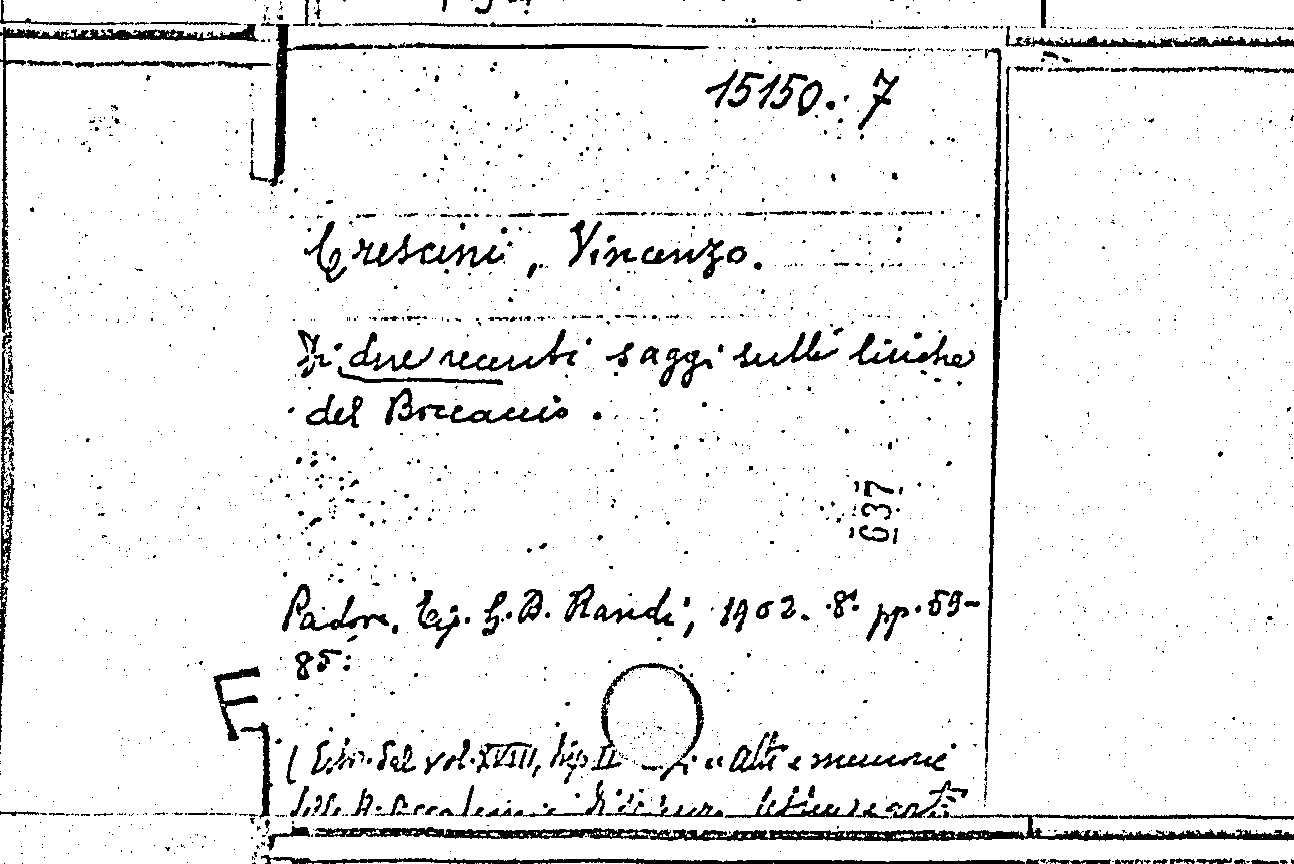 15150. 7
Crescini, Vincenzo.
Di due recenti saggi sulle liriche
del Boccaccio.
637
Padova, Tip. G. B. Randi, 1902. 8º pp. 59-
85.
(Estr. dal vol. XVIII, disp. II Atti e memorie
della R. Accademia di scienze lettere e arti